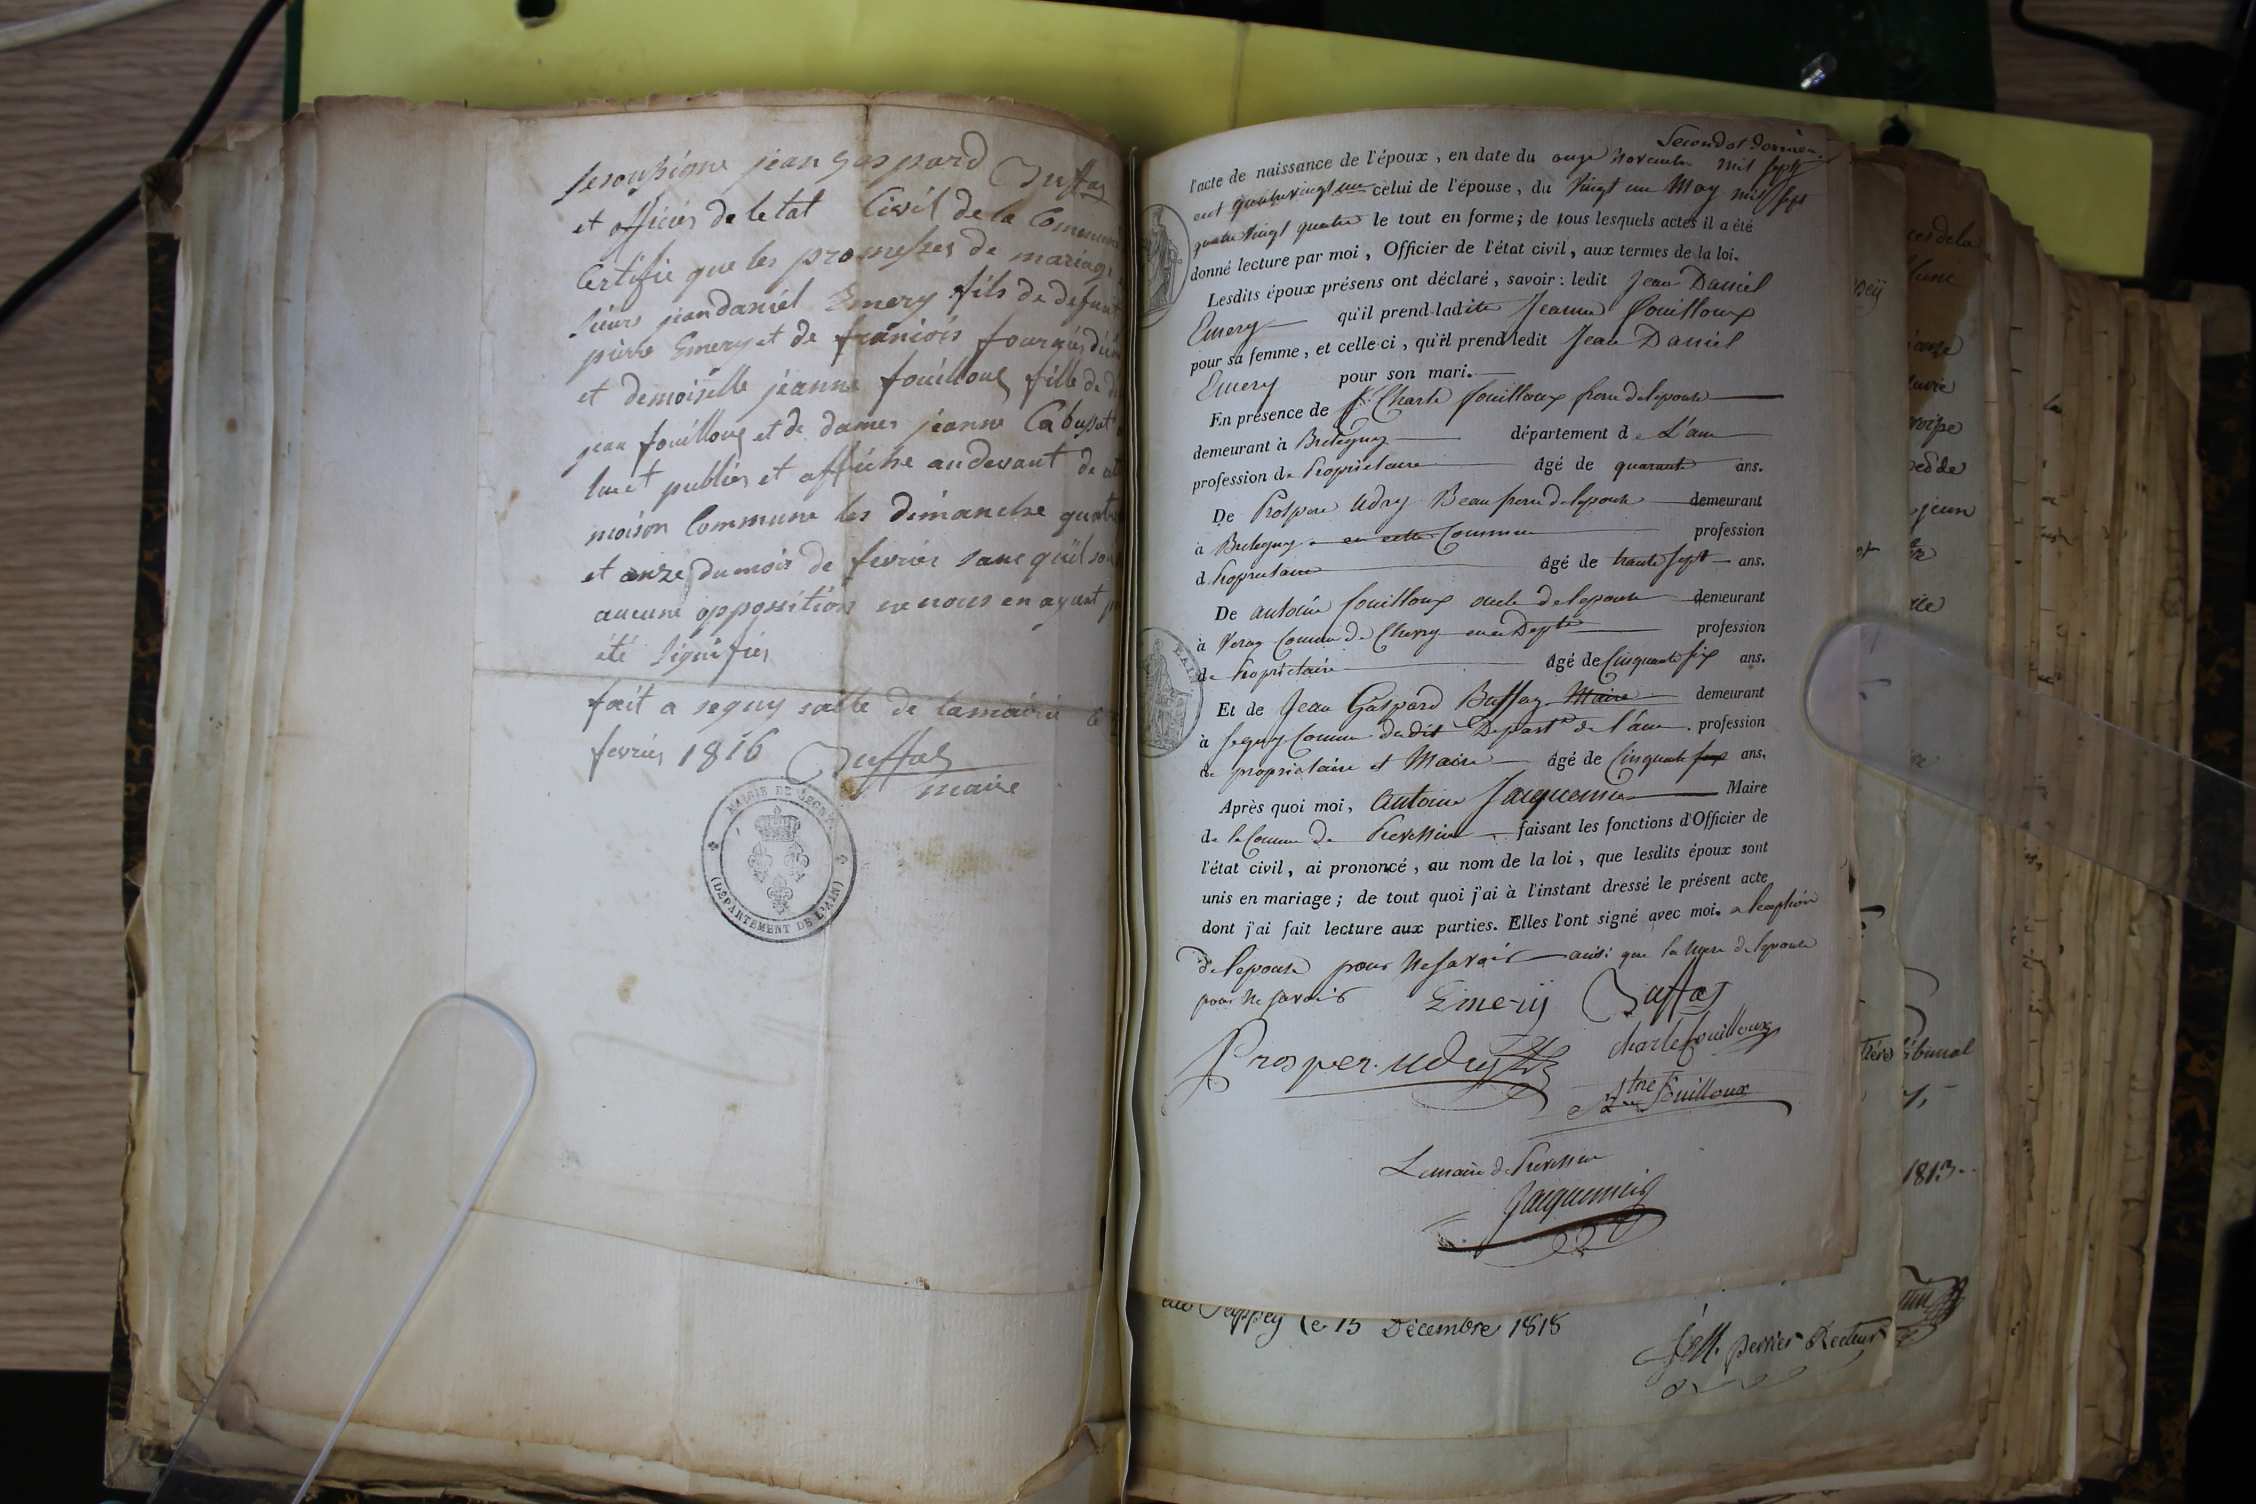 Je sousigné jean gaspard Buffas
et officier de letat Civil de la Commune
Certifie que les promesses de mariage
sieur jean daniel Emery fils de defunt
pierre Emery et de franciois fournier
et demoiselle jeanne fouilloux fille de
jean fouilloux et de dames jeanne Cabussat
lu et publier et affiche au devant de
maison Commune les dimanche quatre
et onze du mois de fevrier sans quil
aucune oppossition ne nous en ayant
été signifier
fait a seguy salle de la mairie
fevrier 1816 Buffas
maire
MAIRIE DE SEGNY
(DÉPARTEMENT DE L'AIN)
Second et dernier
l'acte de naissance de l'époux, en date du onze Novembre mil sept
cent quatre vingt un celui de l'épouse, du Vingt un May mil sept
quatre Vingt quatre le tout en forme; de tous lesquels actes il a été
donné lecture par moi, Officier de l'état civil, aux termes de la loi.
Lesdits époux présens ont déclaré, savoir: ledit Jean Daniel
Emery qu'il prend ladite Jeanne fouilloux
pour sa femme, et celle-ci, qu'il prend ledit Jean Daniel
Emery pour son mari.
En présence de Sr. Charle fouilloux frere de lepouse
demeurant à Bretigny département de L'ain
profession de Propriétaire âgé de quarante ans.
De Prospere Udry Beau frere de lepouse demeurant
à Bretigny en cette Commune profession
de Propriétaire âgé de trente sept ans.
De antoine fouilloux oncle de lepouse demeurant
à Veraz Commune de Chevry en ce Depte profession
de Propriétaire âgé de Cinquante six ans.
Et de Jean Gaspard Buffaz Maire demeurant
à Seguy Commune dudit Depart. de l'ain. profession
de propriétaire et Maire âgé de Cinquante ans.
Après quoi moi, Antoine Jacquemin Maire
de la Commune de Prevessin faisant les fonctions d'Officier de
l'état civil, ai prononcé, au nom de la loi, que lesdits époux sont
unis en mariage; de tout quoi j'ai à l'instant dressé le présent acte
dont j'ai fait lecture aux parties. Elles l'ont signé avec moi. a lexeption
de lepouse pour ne savoir ainsi que la Mere de lepouse
pour ne savoir Emerÿ Buffas
charle fouilloux
Prosper. udry
fouilloux
Le maire de Prevessin
Jacquemin
AIN
au Sappey le 15 Décembre 1818
perrier Recteur
tribunal
1813.